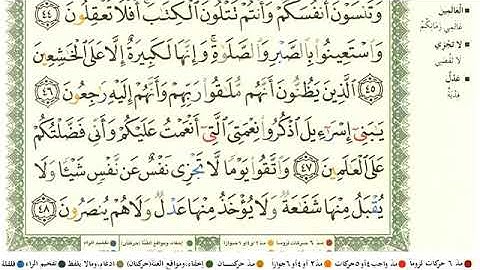 وَتَنسَوْنَ أَنفُسَكُمْ وَأَنتُمْ تَتْلُونَ ٱلْكِتَٰبَ ۚ أَفَلَا تَعْقِلُونَ ٤٤
وَٱسْتَعِينُوا۟ بِٱلصَّبْرِ وَٱلصَّلَوٰةِ ۚ وَإِنَّهَا لَكَبِيرَةٌ إِلَّا عَلَى ٱلْخَٰشِعِينَ
٤٥ ٱلَّذِينَ يَظُنُّونَ أَنَّهُم مُّلَٰقُوا۟ رَبِّهِمْ وَأَنَّهُمْ إِلَيْهِ رَٰجِعُونَ ٤٦
يَٰبَنِىٓ إِسْرَٰٓءِيلَ ٱذْكُرُوا۟ نِعْمَتِىَ ٱلَّتِىٓ أَنْعَمْتُ عَلَيْكُمْ وَأَنِّى فَضَّلْتُكُمْ
عَلَى ٱلْعَٰلَمِينَ ٤٧ وَٱتَّقُوا۟ يَوْمًا لَّا تَجْزِى نَفْسٌ عَن نَّفْسٍ شَيْـًٔا وَلَا
يُقْبَلُ مِنْهَا شَفَٰعَةٌ وَلَا يُؤْخَذُ مِنْهَا عَدْلٌ وَلَا هُمْ يُنصَرُونَ ٤٨
العالمين
عالمي زمانكم
لا تجزي
لا تقضي
عدل
فدية
مد ٦ حركات لزوما مد ٢ أو ٤ أو ٦ جوازا إخفاء، ومواقع الغنة (حركتان) تفخيم الراء
مد ٦ حركات لزوما مد ٢ أو ٤ أو ٦ جوازا مد واجب ٤ أو ٥ حركات مد حركتان إخفاء، ومواقع الغنة (حركتان) ادغام، ومالا يلفظ تفخيم الراء قلقلة